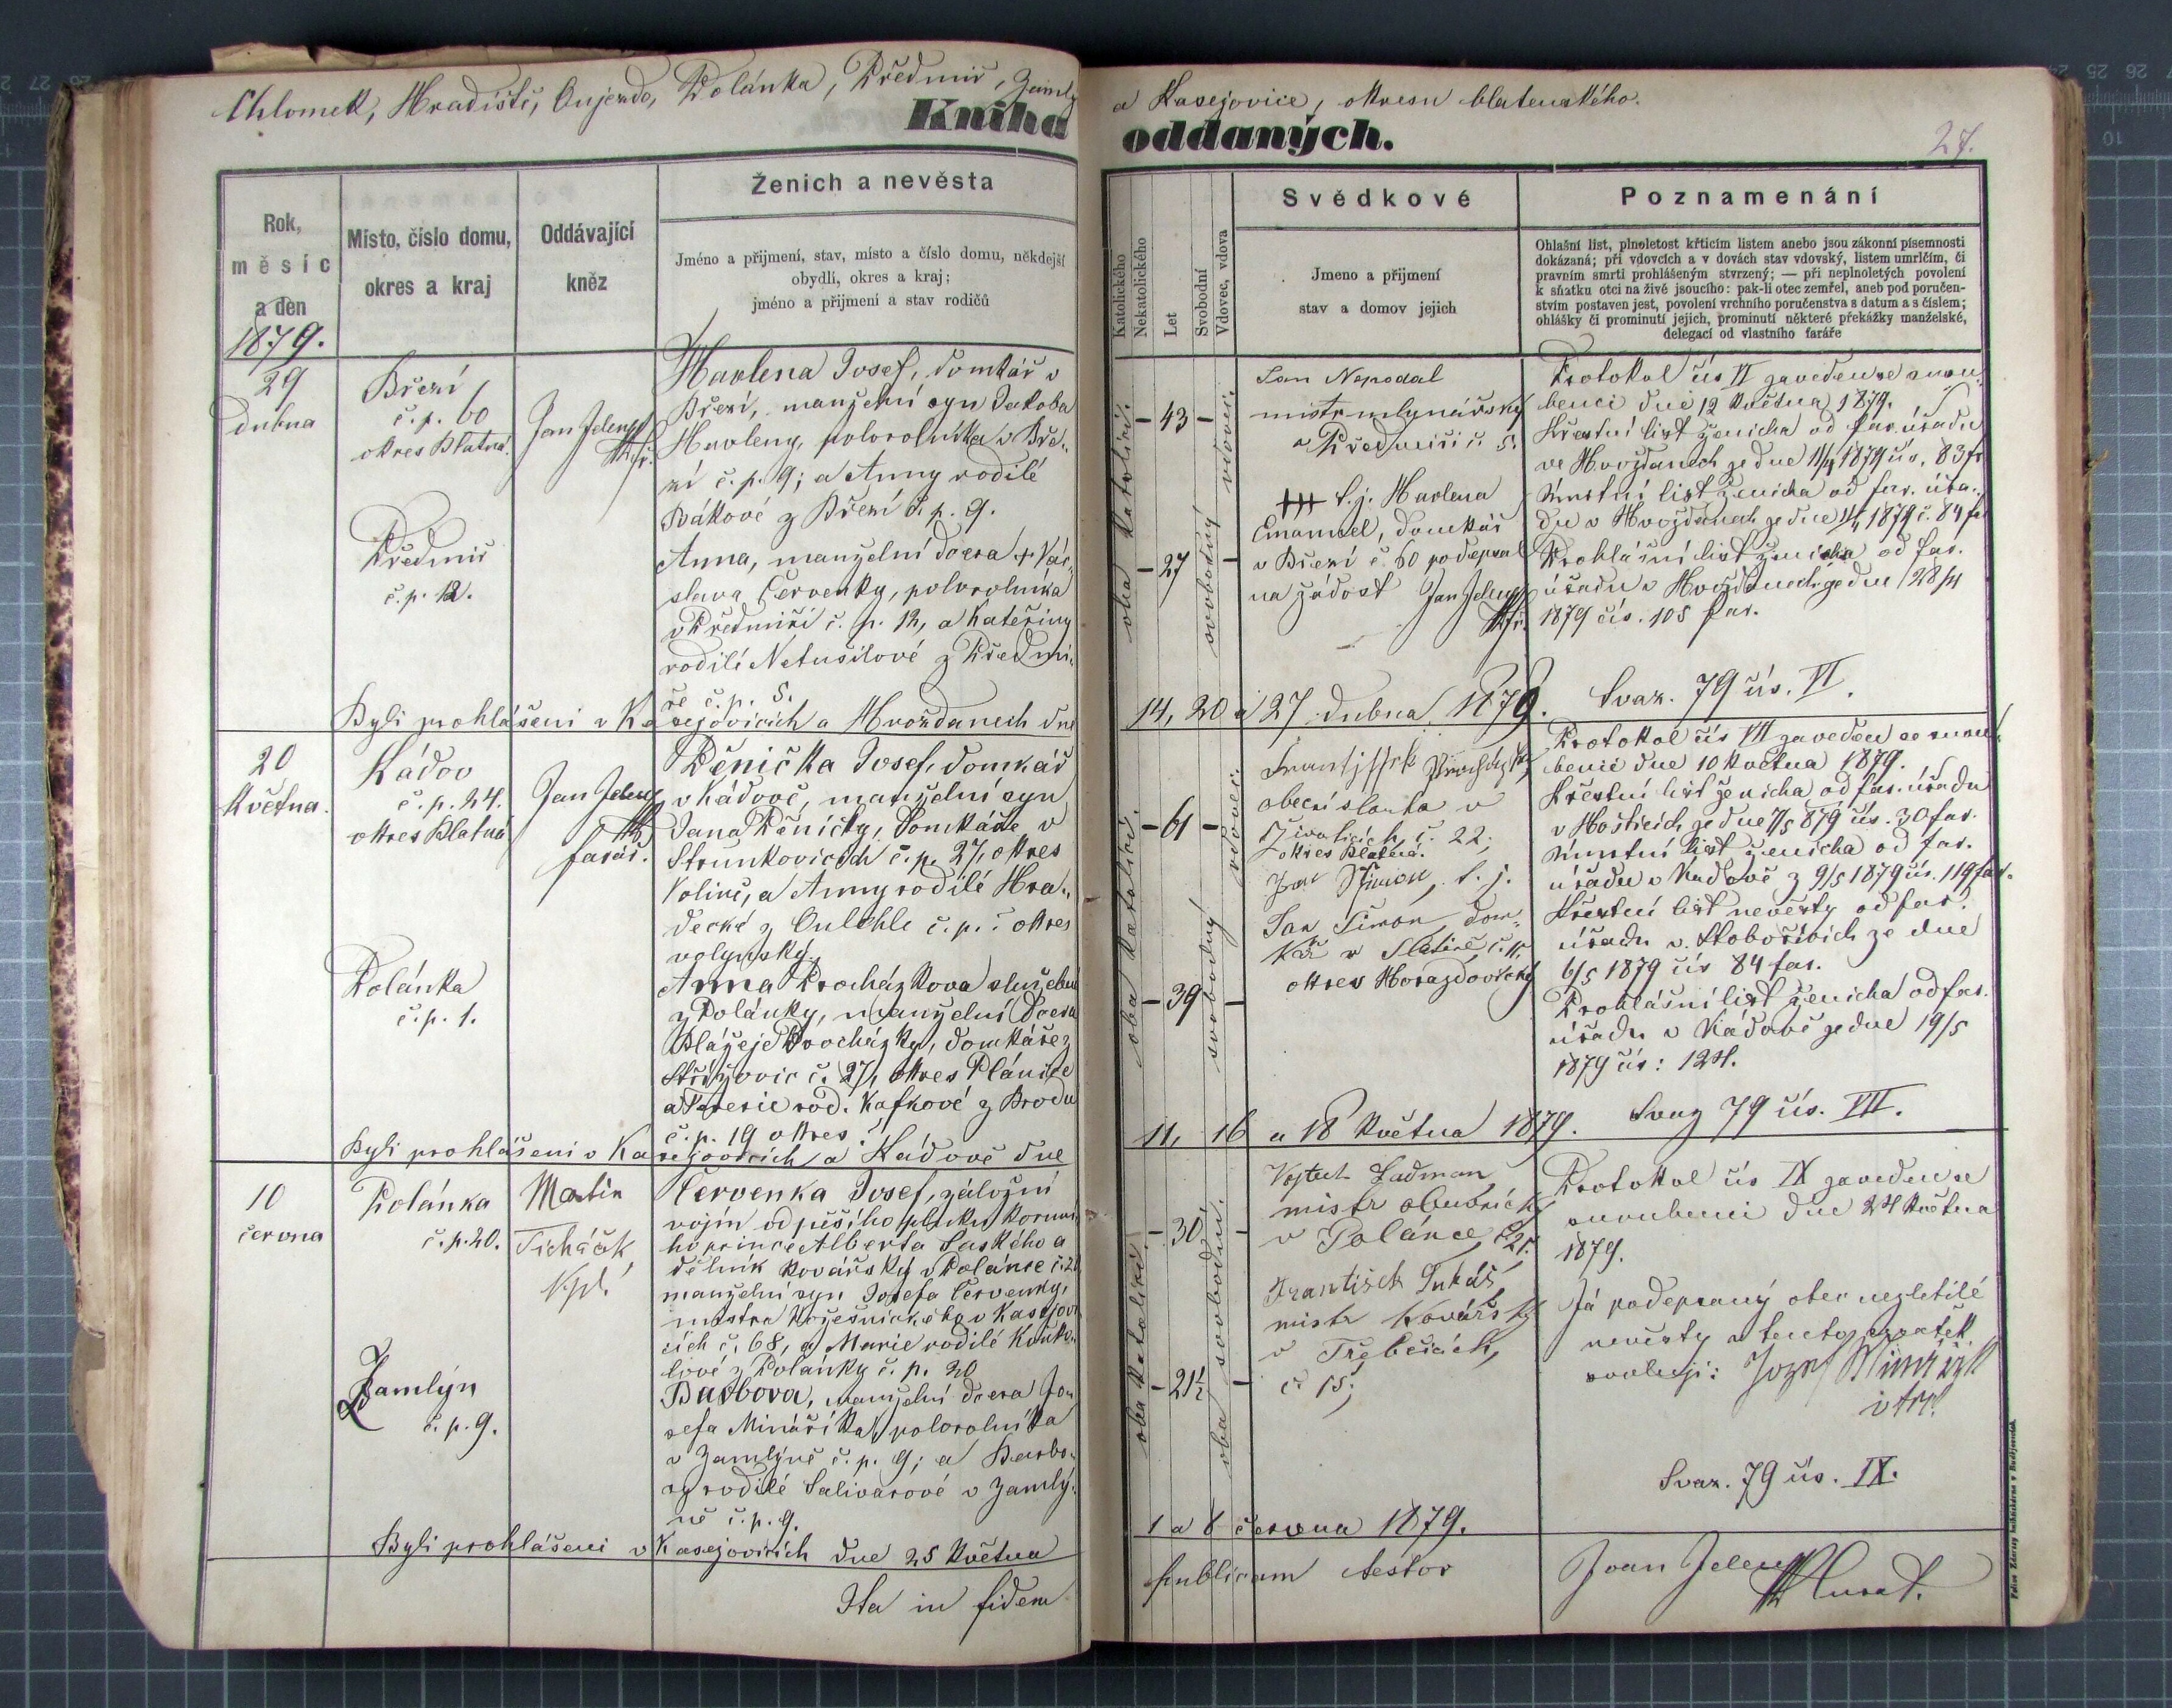 Chlomek, Hradiště, Oujezdo, Polánka, Předmíř, Zámlyn
a Kasejovice, okresu blatenského.
Kniha
oddaných.
27.
Rok,
měsíc
a den
1879.
Místo, číslo domu,
okres a kraj
Oddávající
kněz
Ženich a nevěsta
Jméno a přijmení, stav, místo a číslo domu, někdejší
obydlí, okres a kraj;
jméno a přijmení a stav rodičů
Katolického
Nekatolického
Let
Svobodní
Vdovec, vdova
Svědkové
Jmeno a přijmení
stav a domov jejich
Poznamenání
Ohlašní list, plnoletost křticím listem anebo jsou zákonní písemnosti
dokázaná; při vdovcích a v dovách stav vdovský, listem umrlčím, či
pravním smrti prohlášeným stvrzený; — při neplnoletých povolení
k sňatku otci na živě jsoucího: pak-li otec zemřel, aneb pod poručen-
stvím postaven jest, povolení vrchního poručenstva s datum a s číslem;
ohlášky či prominutí jejich, prominutí některé překážky manželské,
delegací od vlastního faráře
29
dubna
Březí
č. p. 60
okres Blatná.
Předmíř
č. p. 12.
Jan Jeleny
Harlena Josef, domkář v
Březí, manželní syn Jakoba
Harleny, polorolníka v Bře-
zí č. p. 9; a Anny rodilé
Bákové z Březí č. p. 9.
Anna, manželní dcera + Vác-
slava Červenky, polorolníka
v Předmíři č. p. 12, a Kateřiny
rodilé Netušilové z Předmí-
ře č. p. 5.
Byli prohlášeni v Kasejovicích a Hvožďanech dne
oba katolíci.
43
27
vdovec.
svobodný
Jan Nepodal
mistr mlynářský
v Předmíři č. 5.
+++ t. j. Harlena
Emanuel, domkář
v Březí č. 60 podepsal
na žádost Jan Jeleny
14, 20 a 27 dubna 1879.
Protokol čís VI zaveden se snou-
benci dne 12 Května 1879.
Křestní list ženicha od far. úřadu
ve Hvožďanech ze dne 11/4 1879 čís. 83 fr
Úmrtní list ženicha od far. úřa-
du v Hvožďanech ze dne 11/4 1879 č. 84 far
Prohlášní list ženicha od far.
úřadu v Hvožďanech ze dne 28/4
1879 čís. 105 far.
Svaz. 79 čís. VI.
20
Května.
Kádov
č. p. 24.
okres Blatná
Polánka
č. p. 1.
Jan Jeleny
farář.
Pěnička Josef, domkář
v Kádově, manželní syn
Jana Pěničky, domkáře v
Strunkovicích č. p. 27, okres
Volině, a Anny rodilé Hra-
decké z Oulehle č. p. : okres
volynský.
Anna Procházkova služebná
z Polánky, manželní dcera
Blažeje Procházky, domkáře z
Střížovic č. 27, okres Plánice
a Terezie rod. Kafkové z Brodu
č. p. 19 okres
Byli prohlášeni v Kasejovicích a Kádově dne
oba katolíci.
61
39
vdovec.
svobodný
Frantisek Procházka
obecní sloužka v
Životicích č. 22,
okres Blatná.
Jan Šimon, t. j.
Jan Šimon dom-
kář v Slatině, č. p.
okres Horažďovický
11, 16 a 18 Května 1879.
Protokol čís VII zaveden se snou-
benci dne 10 Května 1879.
Křestní list ženicha od far. úřadu
v Hošticích ze dne 7/5 879 čís. 30 far.
Úmrtní list ženicha od far.
úřadu v Kadově z 9/5 1879 čís. 119 far.
Křestní list nevěsty od far.
úřadu v. Kobořicích ze dne
6/5 1879 čís 84 far.
Prohlášní list ženicha od far.
úřadu v Kádově ze dne 19/5
1879 čís: 124.
Svaz 79 čís. VII.
10
června
Polánka
č. p. 20.
Zamlýn
č. p. 9.
Martin
Ticháček
Kpl.
Červenka Josef, záložní
vojín od pěšího pluku korun-
ho prince Alberta Saského a
dělník kovářský v Polánce č. 20
manželní syn Josefa Červenky,
mistra kožešnického v Kasejovi-
cích č. 68, a Marie rodilé Kouke-
lové z Polánky č. p. 20
Barbora, manželní dcera Jo-
sefa Mináříka, polorolníka
v Zamlýně č. p. 9; a Barbo-
ry rodilé Salivarové v Zamlý-
ně č. p. 9.
Byli prohlášeni v Kasejovicích dne 25 Května
oba katolíci
30
21½
oba svobodní.
Vojtech Ladman
mistr obuvnický
v Polánce, č. 21.
Frantisek Lukáš,
mistr kovářský
v Třebčicích,
č 15;
1 a 8 června 1879.
Protokol čís IX zaveden se
snoubenci dne 24 Května
1879.
Já podepsaný otec nezletilé
nevěsty v tento sňatek
svoluji: Jozef Minařik
otec.
Svaz. 79 čís. IX.
Ita in fidem
publicam testor
Joan Jeleny
Curat.